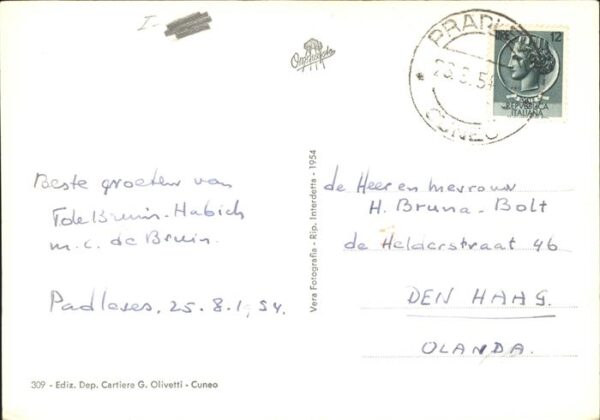 I-
PRADLE
CUNEO
12
REPUBBLICA
ITALIANA
Beste groeten van
T de Bruin-Habich
m. c. de Bruin.
Padleves, 25.8.1,54.
de Heer en mevrouw
H. Bruna-Bolt
de Helderstraat 46
DEN HAAG.
OLANDA.
Vera Fotografia - Rip. Interdetta - 1954
309 - Ediz. Dep. Cartiere G. Olivetti - Cuneo